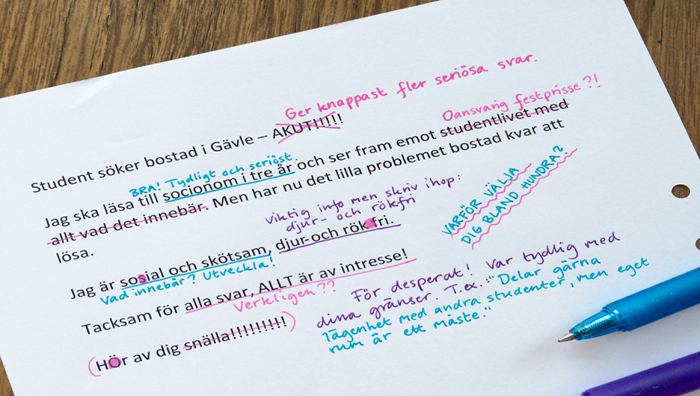 Ger knappast fler seriösa svar.
Student söker bostad i Gävle – AKUT!!!!!
Oansvarig festprisse?!
BRA! Tydligt och seriöst.
Jag ska läsa till socionom i tre år och ser fram emot studentlivet med
allt vad det innebär. Men har nu det lilla problemet bostad kvar att
lösa.
Viktig info men skriv ihop:
djur- och rökfri
VARFÖR VÄLJA
DIG BLAND HUNDRA?
Jag är sosial och skötsam, djur-och rök fri.
Vad innebär? Utveckla!
Tacksam för alla svar, ALLT är av intresse!
Verkligen??
För desperat! Var tydlig med
dina gränser. T.ex.: "Delar gärna
lägenhet med andra studenter, men eget
rum är ett måste."
(Hör av dig snälla!!!!!!!!!)